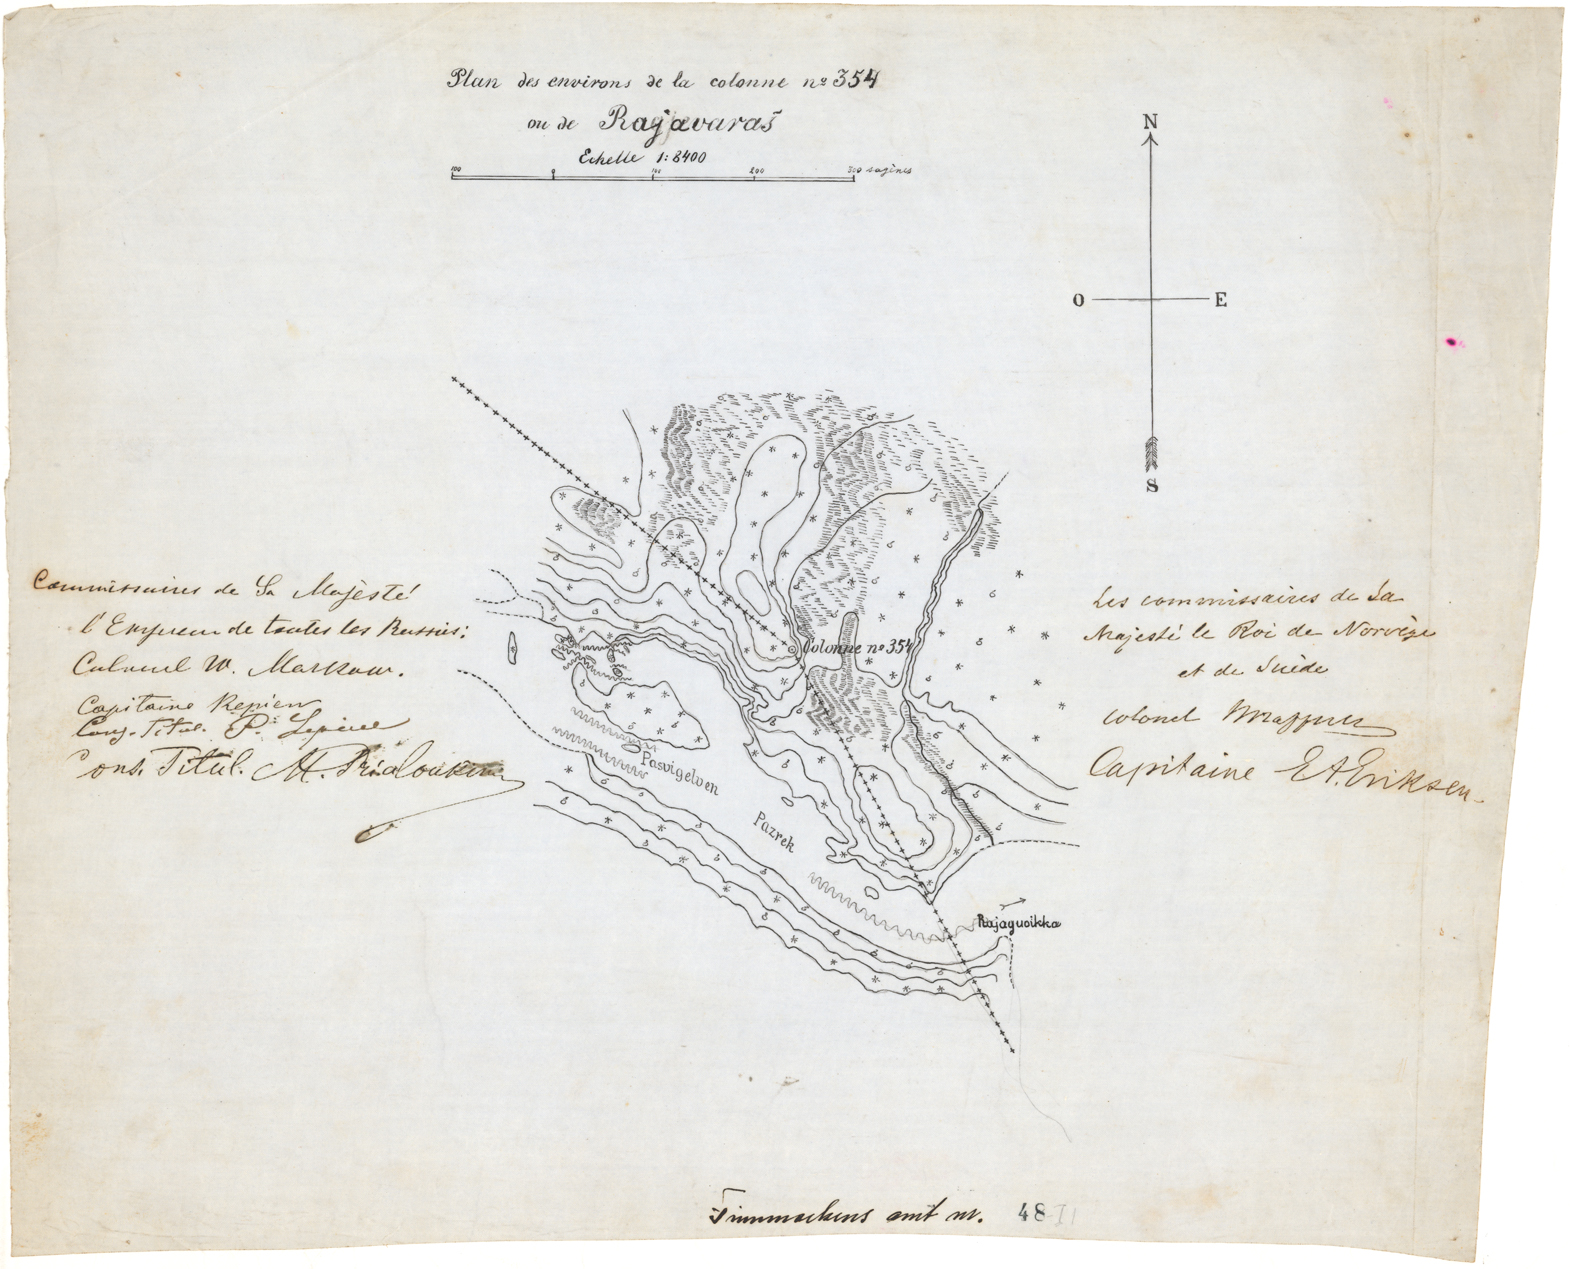 Plan des environs de la colonne nº 354
ou de Rajavaraš
Echelle 1:8400
100 0 100 200 300 sagènes
N
O E
S
Commissaires de Sa Majesté
l'Empereur de toutes les Russies:
Colonel W. Markow.
Capitaine Repiew
Cons. Titul. P.
Cons. Titul. M.
Les commissaires de Sa
Majesté le Roi de Norvège
et de Suède
colonel
Capitaine E A. Eriksen
Colonne nº 354
Pasvigelven
Pazrek
Rajaguoikka
Finmarkens amt nr. 48 II